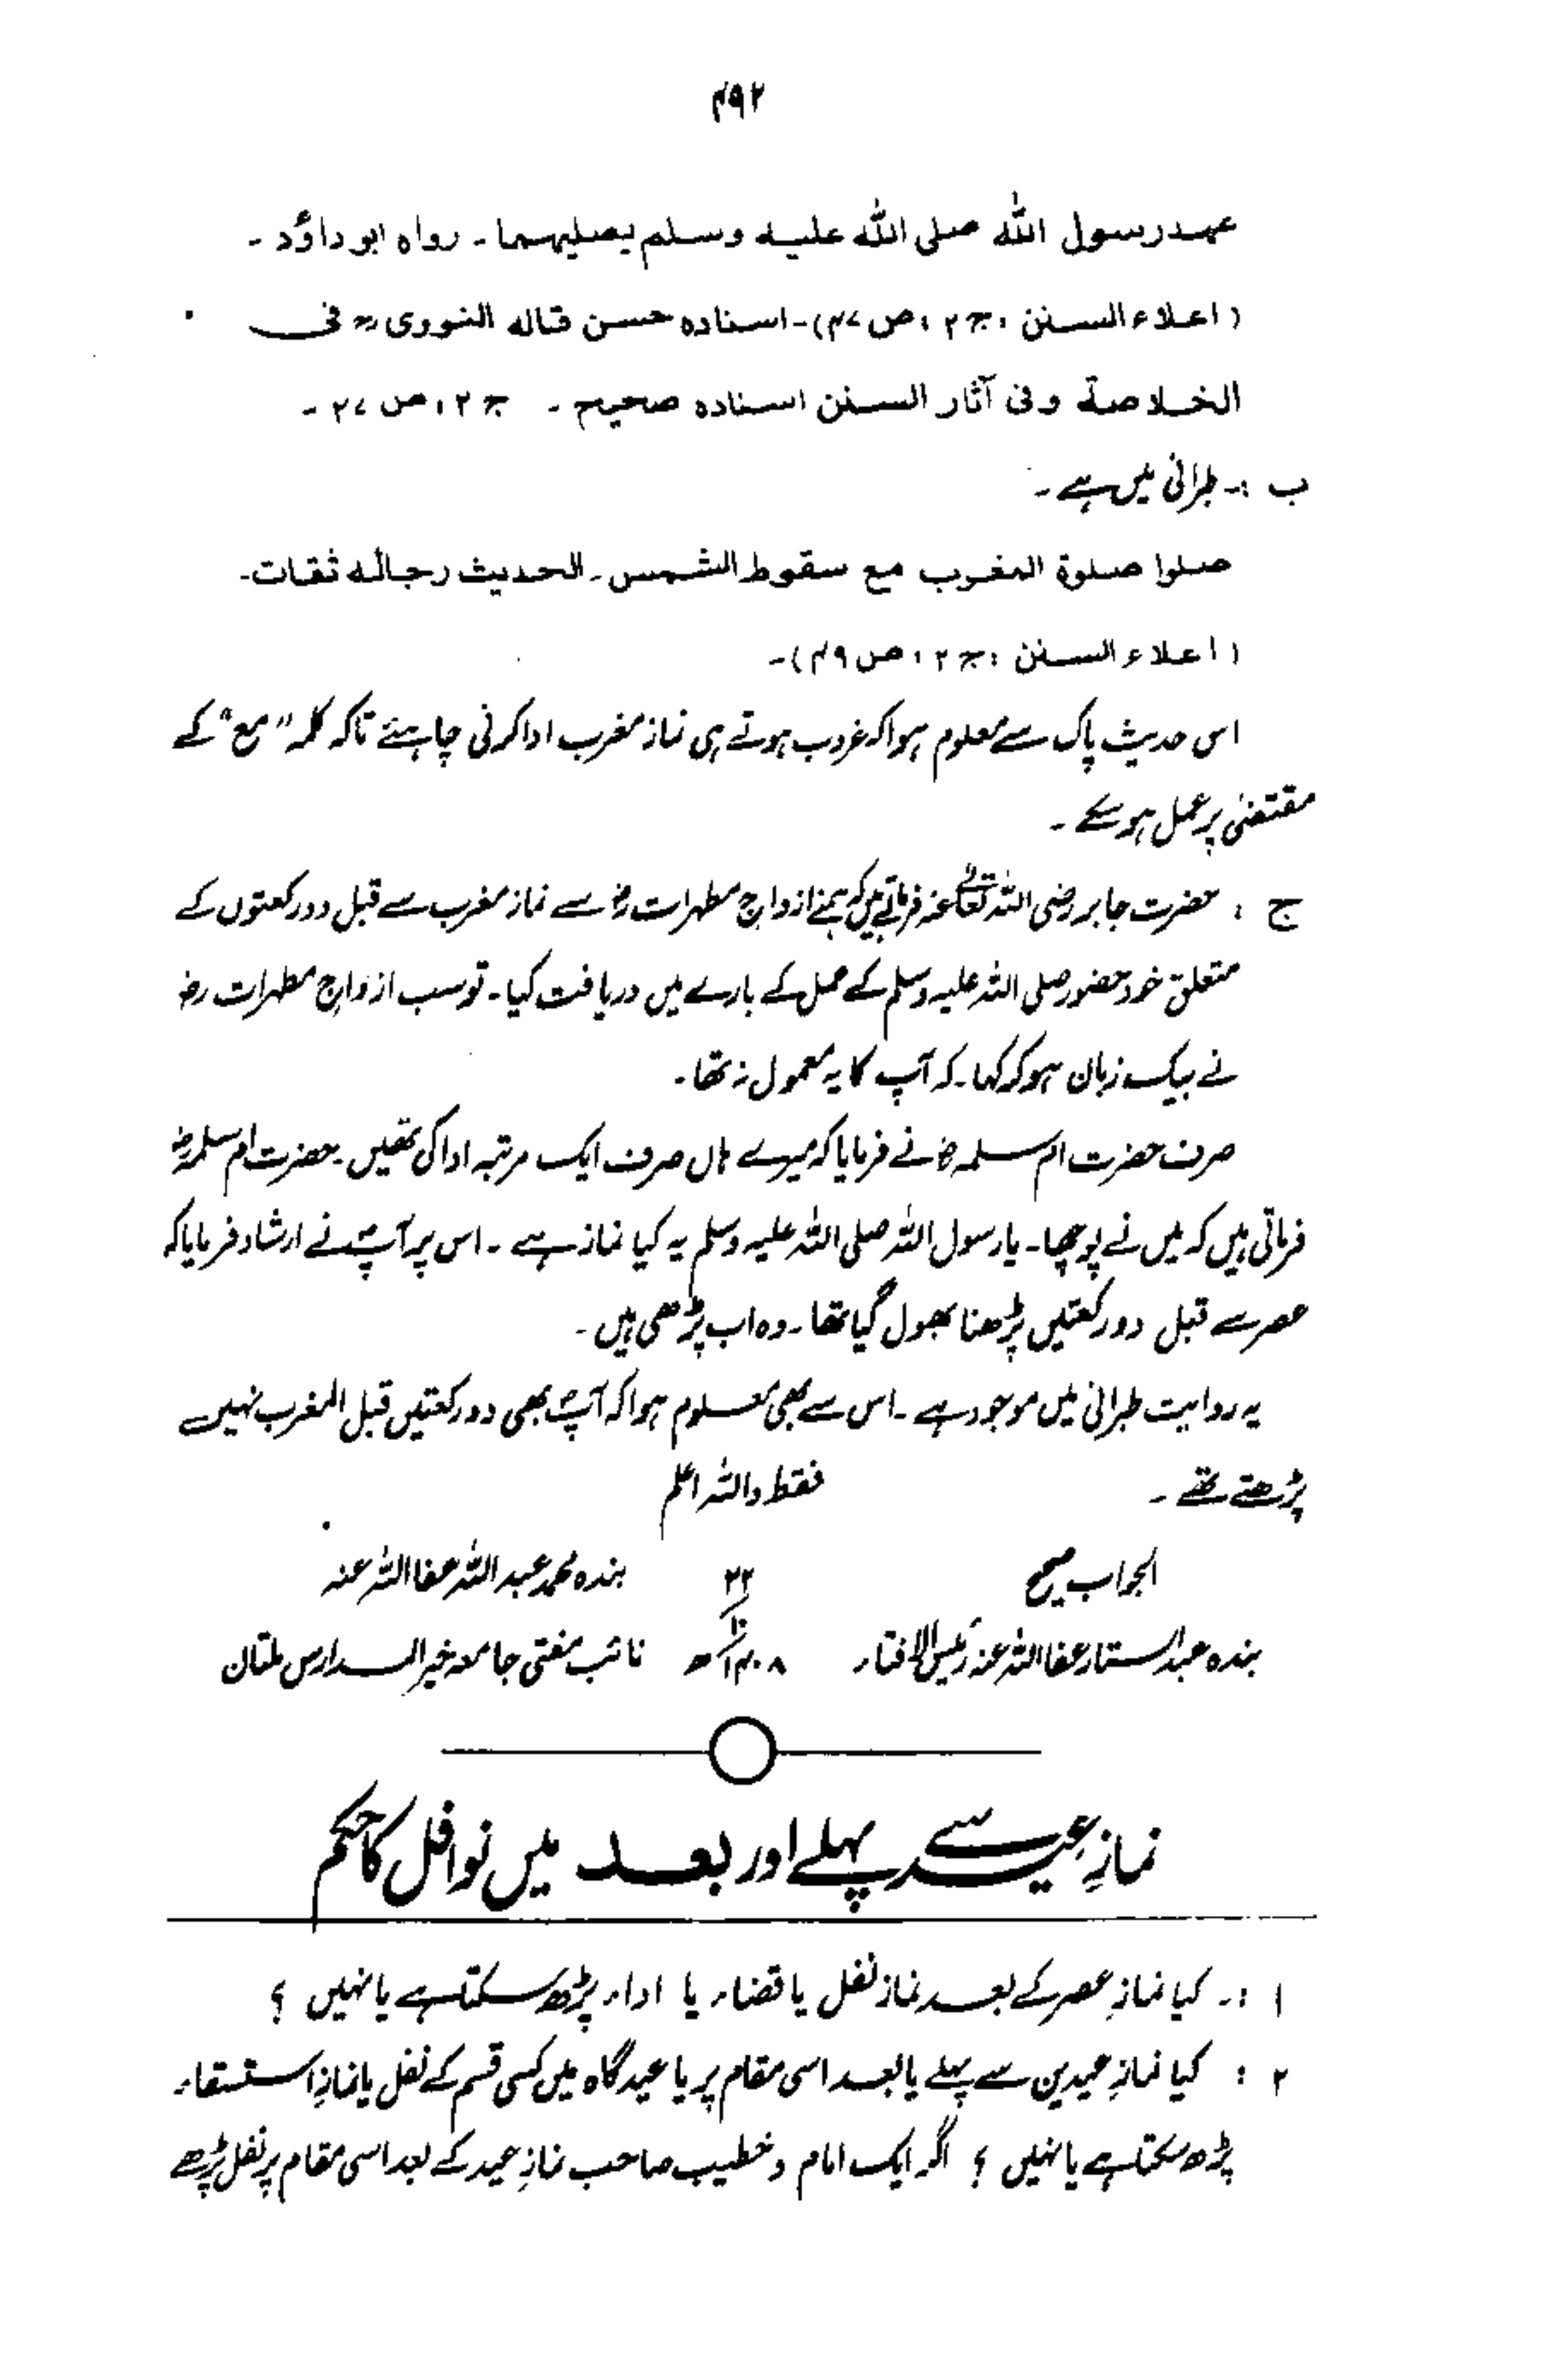 ۴۹۲
عہد رسول اللہ صلی اللہ علیہ وسلم یصلیہما۔ رواہ ابوداؤد۔
(اعلاء السنن، ج ۲، ص ۴۷)۔ اسنادہ حسن قالہ النووی رح فی
الخلاصۃ وفی آثار السنن اسنادہ صحیح۔ ج ۲، ص ۲۷۔
ب :۔ طبرانی میں ہے۔
صلوا صلوۃ المغرب مع سقوط الشمس۔ الحدیث رجالہ ثقات۔
(اعلاء السنن، ج ۲، ص ۴۹)۔
اس حدیث پاک سے معلوم ہوا کہ غروب ہوتے ہی نماز مغرب ادا کرنی چاہئے تاکہ کلمہ "مع" کے
مقتضیٰ پر عمل ہو سکے۔
ج : حضرت جابر رضی اللہ تعالیٰ عنہ فرماتے ہیں کہ ہم نے ازواج مطہرات رض سے نماز مغرب سے قبل دو رکعتوں کے
متعلق خود حضور صلی اللہ علیہ وسلم کے عمل کے بارے میں دریافت کیا۔ تو سب ازواج مطہرات رض
نے بیک زبان ہو کر کہا۔ کہ آپ کا یہ معمول نہ تھا۔
صرف حضرت ام سلمہ رض نے فرمایا کہ میرے ہاں صرف ایک مرتبہ ادا کی تھیں۔ حضرت ام سلمہ رض
فرماتی ہیں کہ میں نے پوچھا۔ یا رسول اللہ صلی اللہ علیہ وسلم یہ کیا نماز ہے۔ اس پر آپ نے ارشاد فرمایا کہ
عصر سے قبل دو رکعتیں پڑھنا بھول گیا تھا۔ وہ اب پڑھی ہیں۔
یہ روایت طبرانی میں موجود ہے۔ اس سے بھی معلوم ہوا کہ آپ بھی دو رکعتیں قبل المغرب نہیں
پڑھتے تھے۔ فقط واللہ اعلم
الجواب صحیح ۲۲ بندہ محمد عبد اللہ عفا اللہ عنہ
بندہ عبد الستار عفا اللہ عنہ رئیس الافتاء ۱۴۰۸ھ نائب مفتی جامعہ خیر المدارس ملتان
نمازِ عید سے پہلے اور بعد میں نوافل کا حکم
۱ :۔ کیا نمازِ عصر کے بعد نماز نفل یا قضاء یا اداء پڑھ سکتا ہے یا نہیں ؟
۲ : کیا نمازِ عیدین سے پہلے یا بعد اسی مقام پر یا عید گاہ میں کسی قسم کے نفل یا نمازِ استسقاء
پڑھ سکتا ہے یا نہیں ؟ اگر ایک امام و خطیب صاحب نمازِ عید کے بعد اسی مقام پر نفل پڑھے